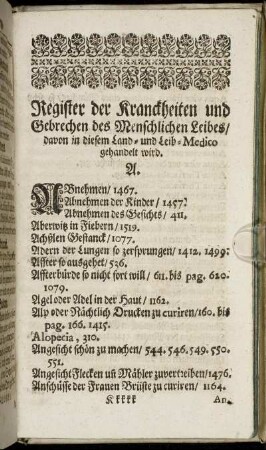 Register der Kranckheiten und
Gebrechen des Menschlichen Leibes/
davon in diesem Land- und Leib-Medico
gehandelt wird.
A.
ABnehmen/ 1467.
Abnehmen der Kinder/ 1457.
Abnehmen des Gesichts/ 411.
Aberwitz in Fiebern/ 1519.
Achßlen Gestanck/ 1077.
Adern der Lungen so zersprungen/ 1412. 1499.
Affter so ausgehet/ 526.
Affterbürde so nicht fort will/ 611. bis pag. 620.
1079.
Agel oder Adel in der Haut/ 1162.
Alp oder Nächtlich Drucken zu curiren/ 160. bis
pag. 166. 1415.
Alopecia, 310.
Angesicht schön zu machen/ 544. 546. 549. 550.
551.
Angesicht Flecken uñ Mähler zuvertreiben/ 1476.
Anschüsse der Frauen Brüste zu curiren/ 1164.
Kkkkk An-